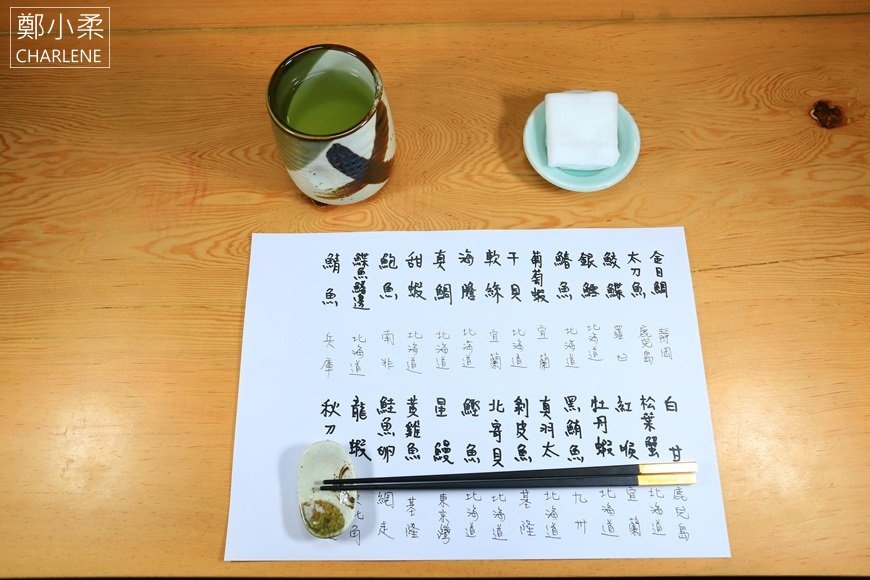 鄭小柔
CHARLENE
金目鯛
靜岡
太刀魚
鹿兒島
鮫鰈
羅臼
銀鱈
北海道
鰆魚
北海道
葡萄蝦
宜蘭
干貝
北海道
軟絲
宜蘭
海膽
北海道
真鯛
北海道
甜蝦
北海道
鮑魚
南非
鰈魚鰭邊
北海道
鯖魚
兵庫
白甘
鹿兒島
松葉蟹
北海道
紅喉
宜蘭
牡丹蝦
北海道
黑鮪魚
九州
真羽太
北海道
剝皮魚
基隆
北寄貝
北海道
鰹魚
北海道
星鰻
東京灣
黃雞魚
基隆
鮭魚卵
網走
龍蝦
東北角
秋刀